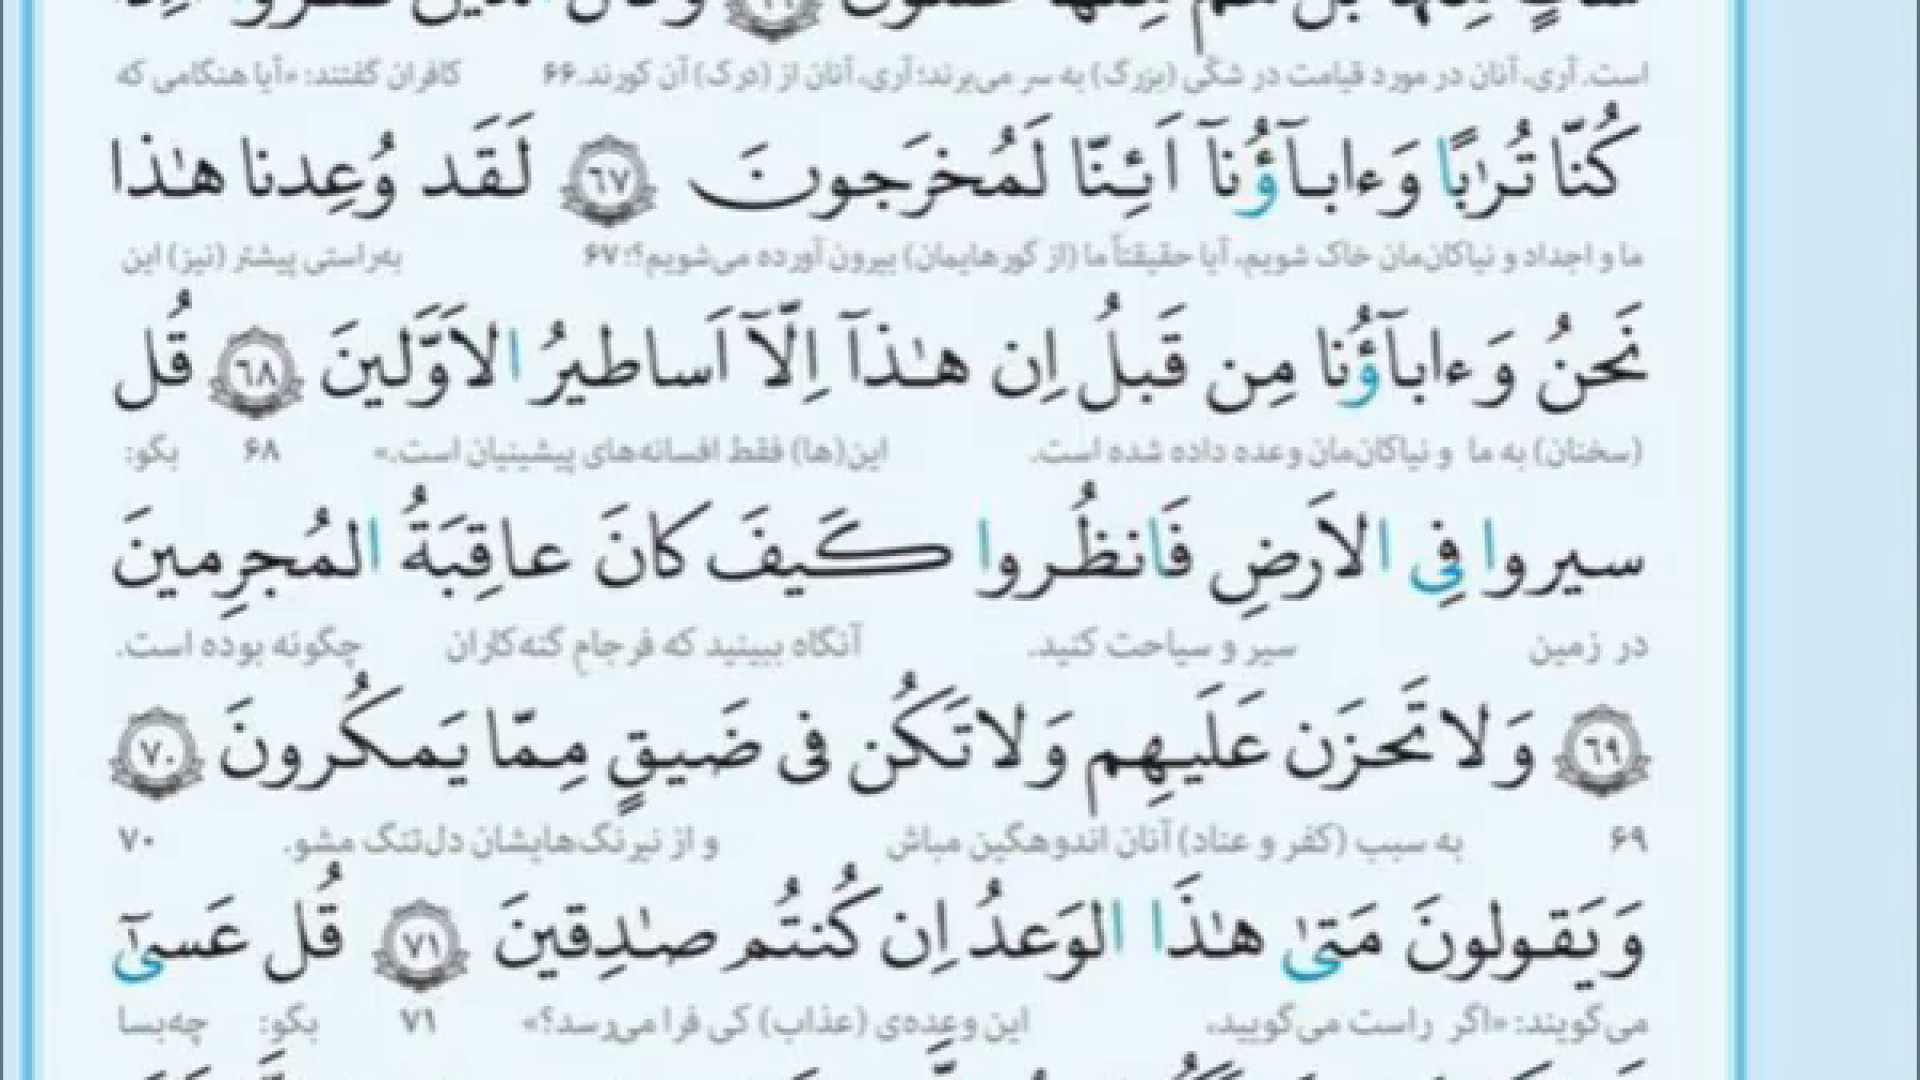 است. آری، آنان در مورد قیامت در شکّی (بزرگ) به سر می‌برند؛ آری، آنان از (درک) آن کورند. ۶۶ کافران گفتند: «آیا هنگامی که
كُنّا تُرٰبًا وَءابآؤُنآ اَئِنّا لَمُخرَجونَ ﴿٦٧﴾ لَقَد وُعِدنا هـٰذا
ما و اجداد و نیاکان‌مان خاک شویم، آیا حقیقتاً ما (از گورهایمان) بیرون آورده می‌شویم؟؛ ۶۷ به‌راستی پیشتر (نیز) این
نَحنُ وَءابآؤُنا مِن قَبلُ اِن هـٰذآ اِلّآ اَساطيرُ الاَوَّلينَ ﴿٦٨﴾ قُل
(سخنان) به ما و نیاکان‌مان وعده داده شده است. این(ها) فقط افسانه‌های پیشینیان است.» ۶۸ بگو:
سيروا فِى الاَرضِ فَانظُروا كَيفَ كانَ عاقِبَةُ المُجرِمينَ
در زمین سیر و سیاحت کنید. آنگاه ببینید که فرجامِ گنه‌کاران چگونه بوده است.
﴿٦٩﴾ وَلا تَحزَن عَلَيهِم وَلا تَكُن فى ضَيقٍ مِمّا يَمكُرونَ ﴿٧٠﴾
۶۹ به سبب (کفر و عناد) آنان اندوهگین مباش و از نیرنگ‌هایشان دل‌تنگ مشو. ۷۰
وَيَقولونَ مَتىٰ هـٰذَا الوَعدُ اِن كُنتُم صـٰدِقينَ ﴿٧١﴾ قُل عَسىٰٓ
می‌گویند: «اگر راست می‌گویید، این وعده‌ی (عذاب) کی فرا می‌رسد؟» ۷۱ بگو: چه‌بسا